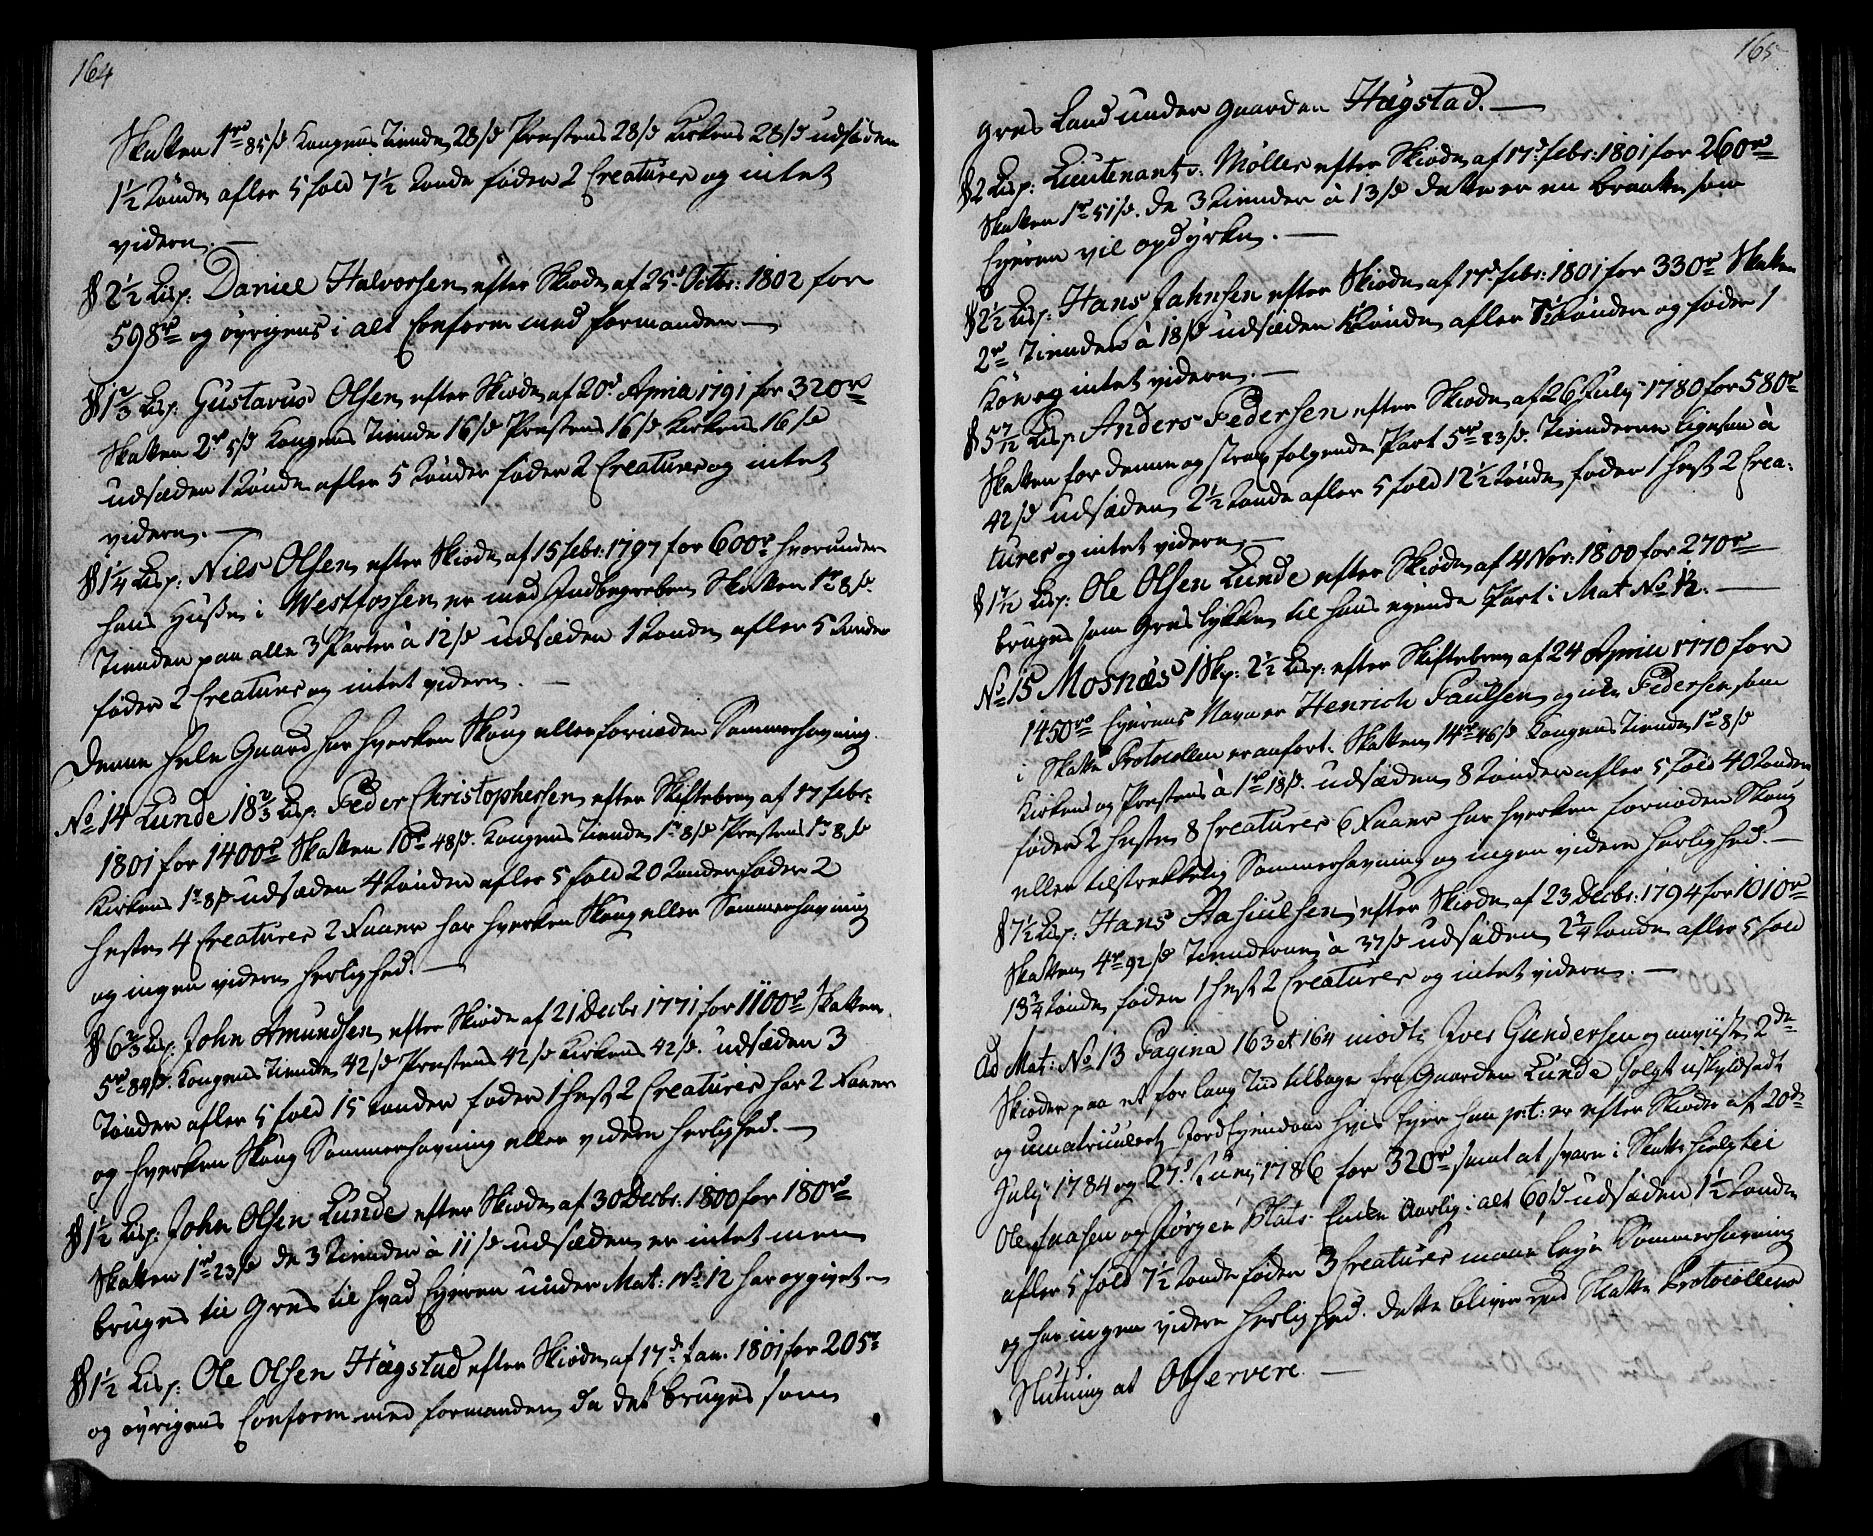 164
Skatten 1rd 85 s Kongens Tiende 28 s Præstens 28 s Kirkens 28 s udsæden
1½ Tønde afler 5 fold 7½ Tønde føder 2 Creaturer og intet
videre. —
§ 2½ Lisp: Daniel Halvorsen efter Skiøde af 25de Octbr: 1802 for
598rd og øvrigens i alt Conform med formanden —
§ 1⅔ Lisp: Gustavus Olsen efter Skiøde af 20d April 1791 for 320rd
Skatten 2rd 5 s Kongens Tiende 16 s Præstens 16 s Kirkens 16 s
udsæden 1 Tønde afler 5 Tønder føder 2 Creaturer og intet
videre. —
§ 1¼ Lisp: Nils Olsen efter Skiøde af 15 febr: 1797 for 600rd hvorunder
hans Huse i Westfossen er med Indbegreben Skatten 1rd 8 s.
Tienden paa alle 3 Parter à 12 s udsæden 1 Tønde afler 5 Tønder
føder 2 Creaturer og intet videre. —
Denne hele Gaard har hverken Skoug eller fornøden Sommerhavning.
No 14 Lunde 18⅔ Lisp: Peder Christophersen efter Skiftebrev af 17 febr:
1801 for 1400rd Skatten 16rd 48 s. Kongens Tiende 1rd 8 s Præstens 1rd 8 s
Kirkens 1rd 8 s udsæden 4 Tønder afler 5 fold 20 Tønder føder 2
Heste 4 Creaturer 2 Faaer har hverken Skoug eller Sommerhavning
og ingen videre herlighed. —
§ 6⅔ Lisp: John Amundsen efter Skiøde af 21 Decbr 1771 for 1100rd Skatten
5rd 84 s. Kongens Tiende 42 s Præstens 42 s Kirkens 42 s. udsæden 3
Tønder afler 5 fold 15 Tønder føder 1 Hest 2 Creaturer har 2 Faaer
og hverken Skoug Sommerhavning eller videre herlighed. —
§ 1½ Lisp: John Olsen Lunde efter Skiøde af 30 Decbr: 1800 for 180rd
Skatten 1rd 23 s de 3 Tiender à 11 s udsæden er intet men
bruges til Gres til hvad Eyeren under Mat: No 12 har opgivet —
§ 1½ Lisp: Ole Olsen Hægstad efter Skiøde af 17d Jan. 1801 for 205rd
og øvrigens Conform med formanden da det bruges som
165
Gres Land under Gaarden Hægstad. —
§ 2 Lisp: Lieutenant v. Møller efter Skiøde af 17d febr: 1801 for 260rd
Skatten 1rd 51 s. de 3 Tiender à 13 s dette er en braatte som
Eyeren vil opdyrke. —
§ 2½ Lisp: Hans Jahnsen efter Skiøde af 17d febr: 1801 for 330rd Skatten
2rd Tiender à 18 s udsæden Tønde afler Tønder og føder 1
Koe og intet videre. —
§ 5 Lisp: Anders Pedersen efter Skiøde af 26 July 1780 for 580rd
Skatten for denne og strax følgende Part 5rd 23 s. Tienderne Ligesaa à
42 s udsæden 2½ Tønde afler 5 fold 12½ Tønde føder 1 Hest 2 Crea:
turer og intet videre —
§ 1½ Lisp: Ole Olsen Lunde efter Skiøde af 4 Nov: 1800 for 270rd
bruges som Gres lykke til hans egende Part i Mat No 12. —
No 15 Mosnæs 1 Skp: 2½ Lisp: efter Skiftebrev af 24 April 1770 for
1450rd Eyerens Navn er Henrich Paulsen og ikke Pedersen som
i Skatte Protocollen er anført. Skatten 14rd 46 s Kongens Tiende 1rd 8 s
Kirkens og Præstens à 1rd 18 s. udsæden 8 Tønder afler 5 fold 40 Tønder
føder 2 Heste 8 Creaturer 6 Faaer har hverken fornøden Skoug
eller tilstrekkelig Sommerhavning og ingen videre herlighed. —
§ 7½ Lisp: Hans Aslulsen efter Skiøde af 23 Decbr: 1794 for 1010rd
Skatten 4rd 92 s Tienderne à 37 s udsæden 2¾ Tønde afler 5 fold
13¾ Tønde føder 1 Hest 2 Creaturer og intet videre. —
Ad Mat: No 13 Pagina 163 et 164 mødte Iver Gundersen og anviiste 2de
Skiøder paa et for lang Tid tilbage fra Gaarden Lunde solgt uskyldsadt
og umatriculert Jord Eyendom hvis Eyer han p:t: er efter Skiøder af 20de
July 1784 og 27d Juny 1786 for 320rd samt at svare i Skatte hielp til
Ole Isaksen og Jørgen Plats Enke Aarlig i alt 60 s udsæden 1½ Tønde
afler 5 fold 7½ Tønde føder 3 Creaturer maae leye Sommerhavning
og har ingen videre herlighed. dette bliver ved Skatte Protocollens
Slutning at Observere. —